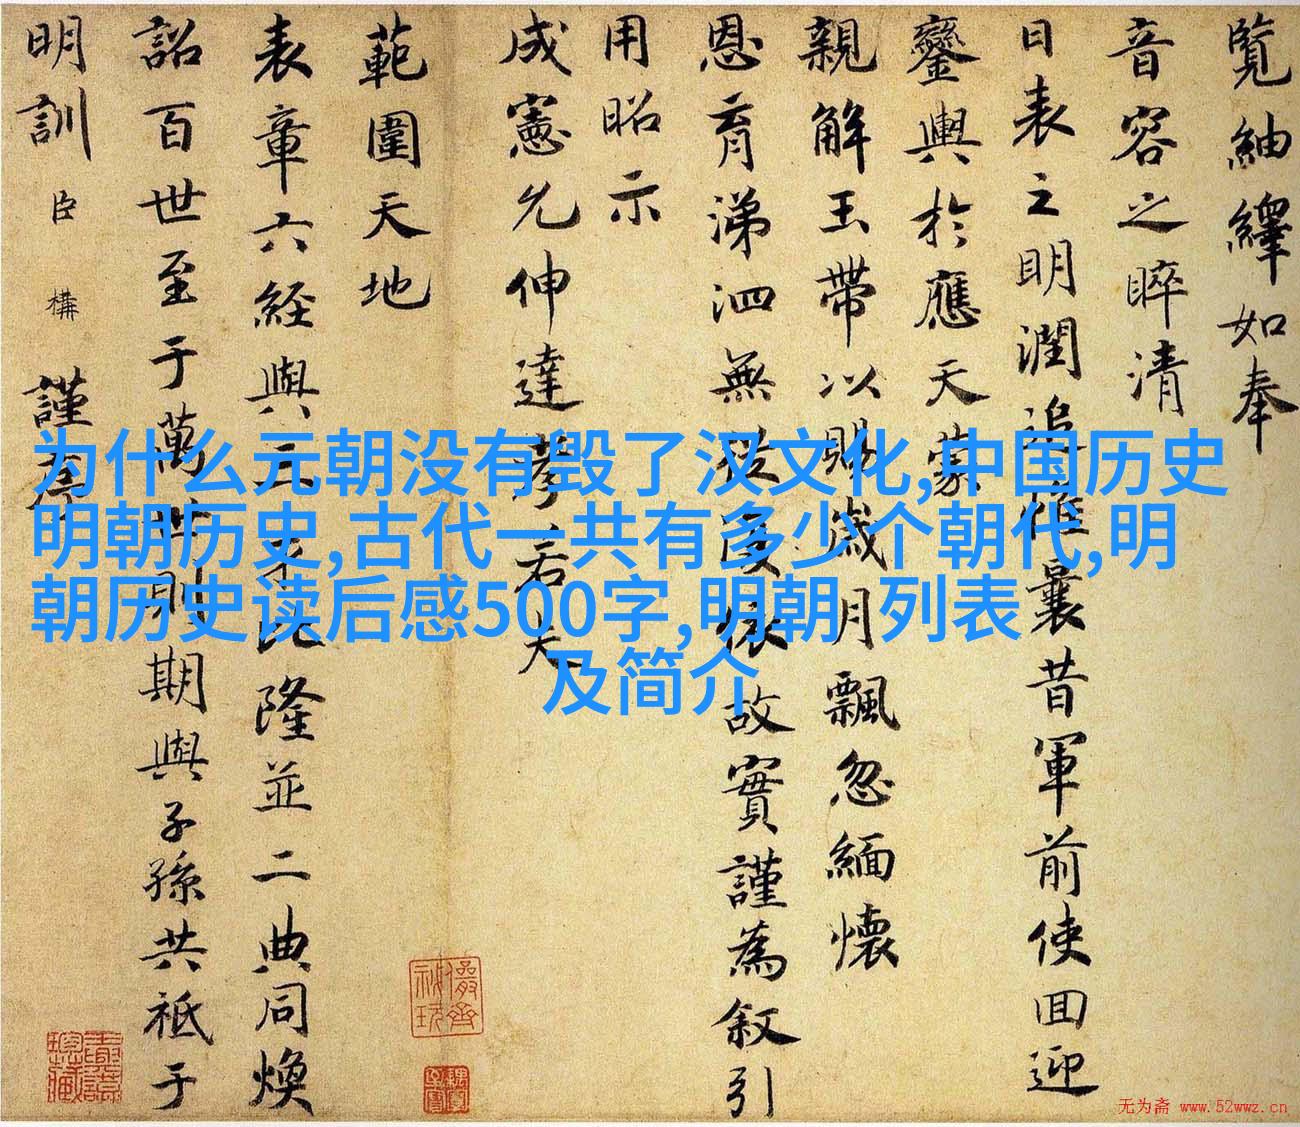 覽紬繹如奉
音容之睟清
日表之明潤追惟曩昔軍前使囬迎
鑾輿於應天蒙
親解玉帶以賜歲月飄忽緬懷
恩育涕泗無從虔依故實謹為叙引
用昭示
成憲允伸達孝若夫
範圍天地
表章六経與三才比隆並二典同煥
詔百世至于萬世則期與子孫共祗于
明訓臣構謹序
为什么元朝没有毁了汉文化,中国历史
明朝历史,古代一共有多少个朝代,明
朝历史读后感500字,明朝 列表
及简介
无为斋 www.52wwz.cn